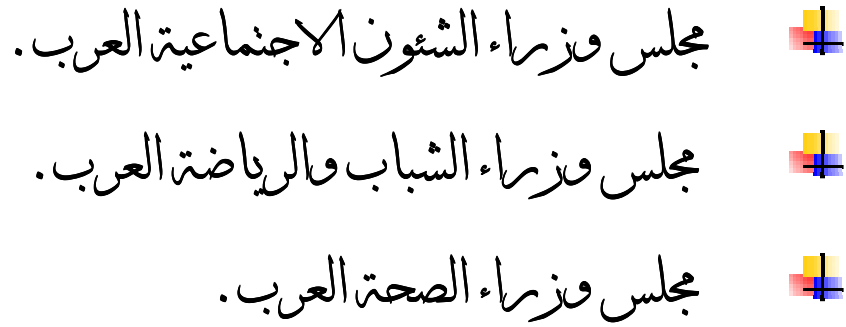 مجلس وزراء الشئون الاجتماعية العرب .
مجلس وزراء الشباب والرياضة العرب .
مجلس وزراء الصحة العرب .